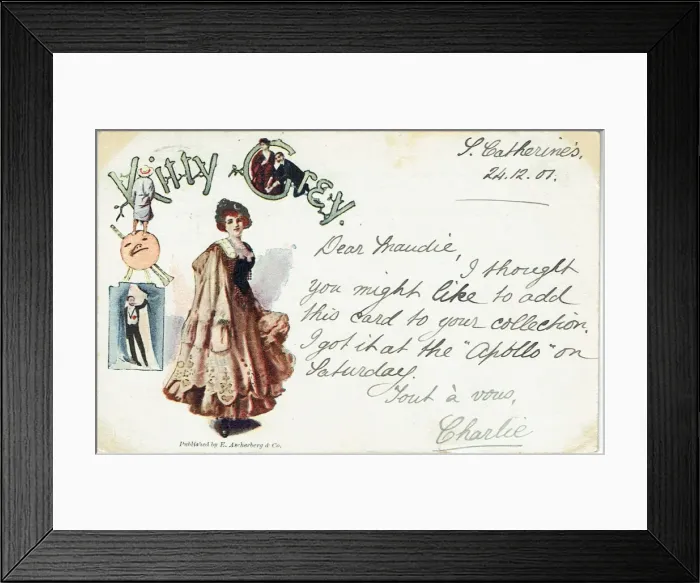 KITTY GREY.
S. Catherine's,
24.12.01.
Dear Maudie,
I thought
you might like to add
this card to your collection.
I got it at the "Apollo" on
Saturday.
Tout à vous,
Charlie
Published by E. Ascherberg & Co.